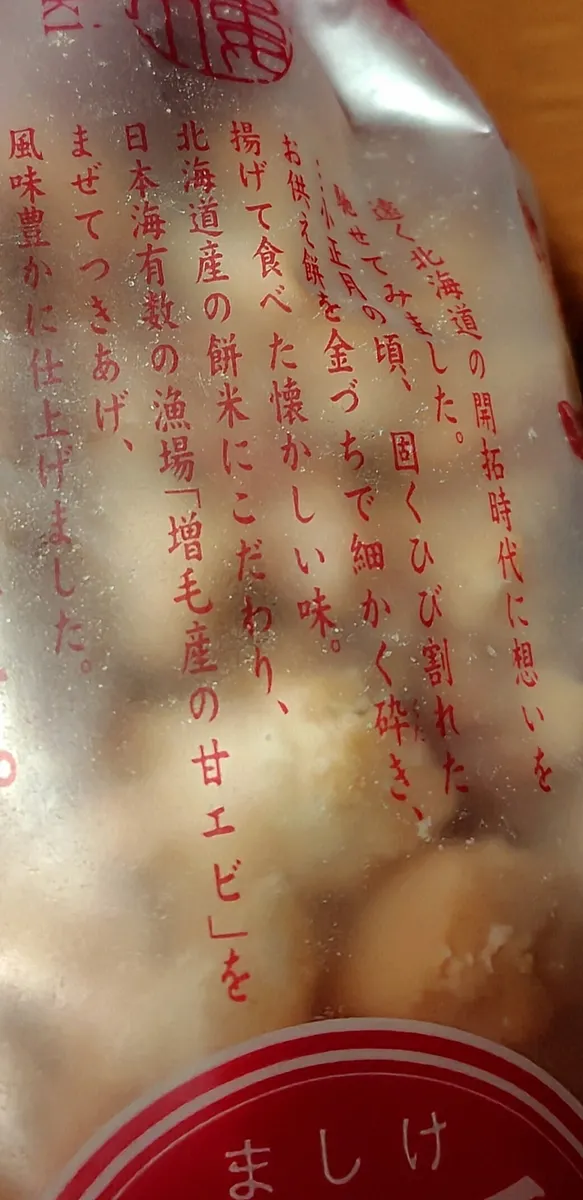 遠く北海道の開拓時代に想いを
馳せてみました。
…小正月の頃、固くひび割れた
お供え餅を金づちで細かく砕き、
揚げて食べた懐かしい味。
北海道産の餅米にこだわり、
日本海有数の漁場「増毛産の甘エビ」を
まぜてつきあげ、
風味豊かに仕上げました。
ましけ